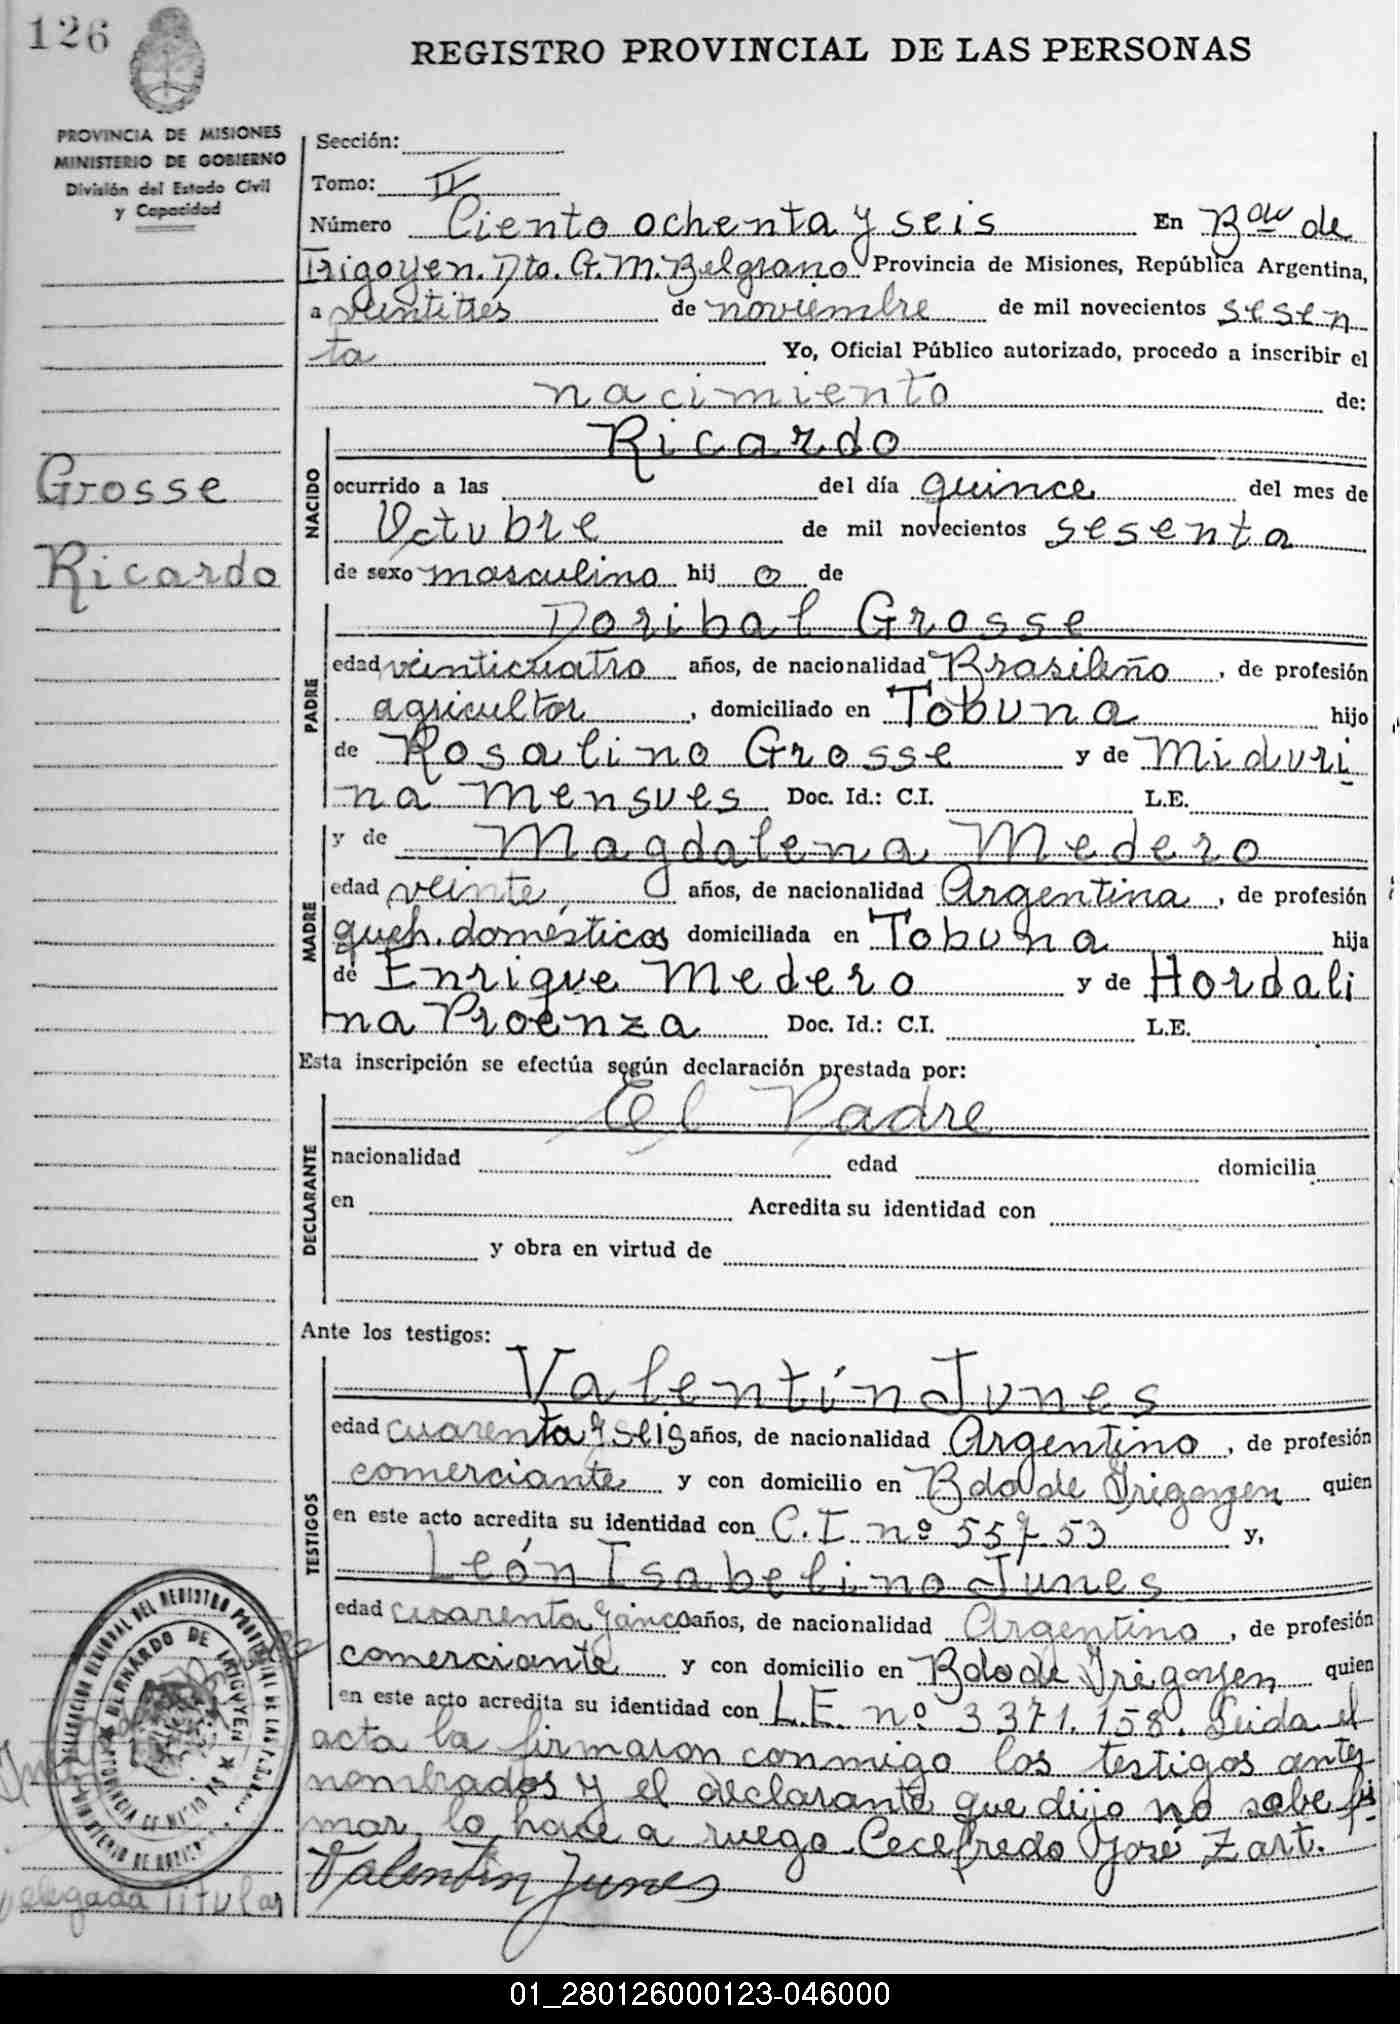 126
REGISTRO PROVINCIAL DE LAS PERSONAS
PROVINCIA DE MISIONES
MINISTERIO DE GOBIERNO
División del Estado Civil
y Capacidad
Sección:
Tomo: II
Número Ciento ochenta y seis En Bdo de
Irigoyen. Dto. G. M. Belgrano Provincia de Misiones, República Argentina,
a veintitrés de noviembre de mil novecientos sesen
ta Yo, Oficial Público autorizado, procedo a inscribir el
nacimiento de:
Grosse
Ricardo
NACIDO
Ricardo
ocurrido a las del día quince del mes de
Octubre de mil novecientos sesenta
de sexo masculino hij o de
PADRE
Doribal Grosse
edad veinticuatro años, de nacionalidad Brasileño, de profesión
agricultor, domiciliado en Tobuna hijo
de Rosalino Grosse y de Miduri
na Mensues Doc. Id.: C.I. L.E.
MADRE
y de Magdalena Medero
edad veinte, años, de nacionalidad Argentina, de profesión
queh. domésticos domiciliada en Tobuna hija
de Enrique Medero y de Hordali
na Proenza Doc. Id.: C.I. L.E.
Esta inscripción se efectúa según declaración prestada por:
DECLARANTE
El Padre
nacionalidad edad domicilia
en Acredita su identidad con
y obra en virtud de
Ante los testigos:
TESTIGOS
Valentín Junes
edad cuarenta y seis años, de nacionalidad Argentino, de profesión
comerciante y con domicilio en Bdo de Irigoyen quien
en este acto acredita su identidad con C.I. nº 55753 y,
León Isabelino Junes
edad cuarenta y cinco años, de nacionalidad Argentino, de profesión
comerciante y con domicilio en Bdo de Irigoyen quien
en este acto acredita su identidad con L.E. nº 3371.158. Leida el
acta la firmaron conmigo los testigos antes
nombrados y el declarante que dijo no sabe fir
mar, lo hace a ruego Cecefredo José Zart.
Valentín Junes
BERNARDO DE IRIGOYEN
Delegada Titular
01_280126000123-046000